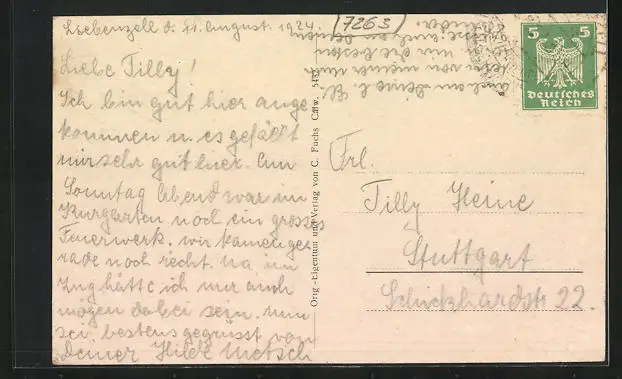 Liebenzell d. 11. August 1924.
(7263)
Liebe Tilly!
Ich bin gut hier ange
kommen u. es gefällt
mir sehr gut hier. Am
Sonntag Abend war im
Kurgarten noch ein grosses
Feuerwerk. wir kamen ge
rade noch recht. Na im
Zug hätte ich nur auch
mögen dabei sein. nun
sei bestens gegrüsst von
Deiner Hilde Metsch
Orig.-Eigentum und Verlag von C. Fuchs Calw.
5
5
Deutsches
Reich
Frl.
Tilly Heine
Stuttgart
Schickhardtstr 22.